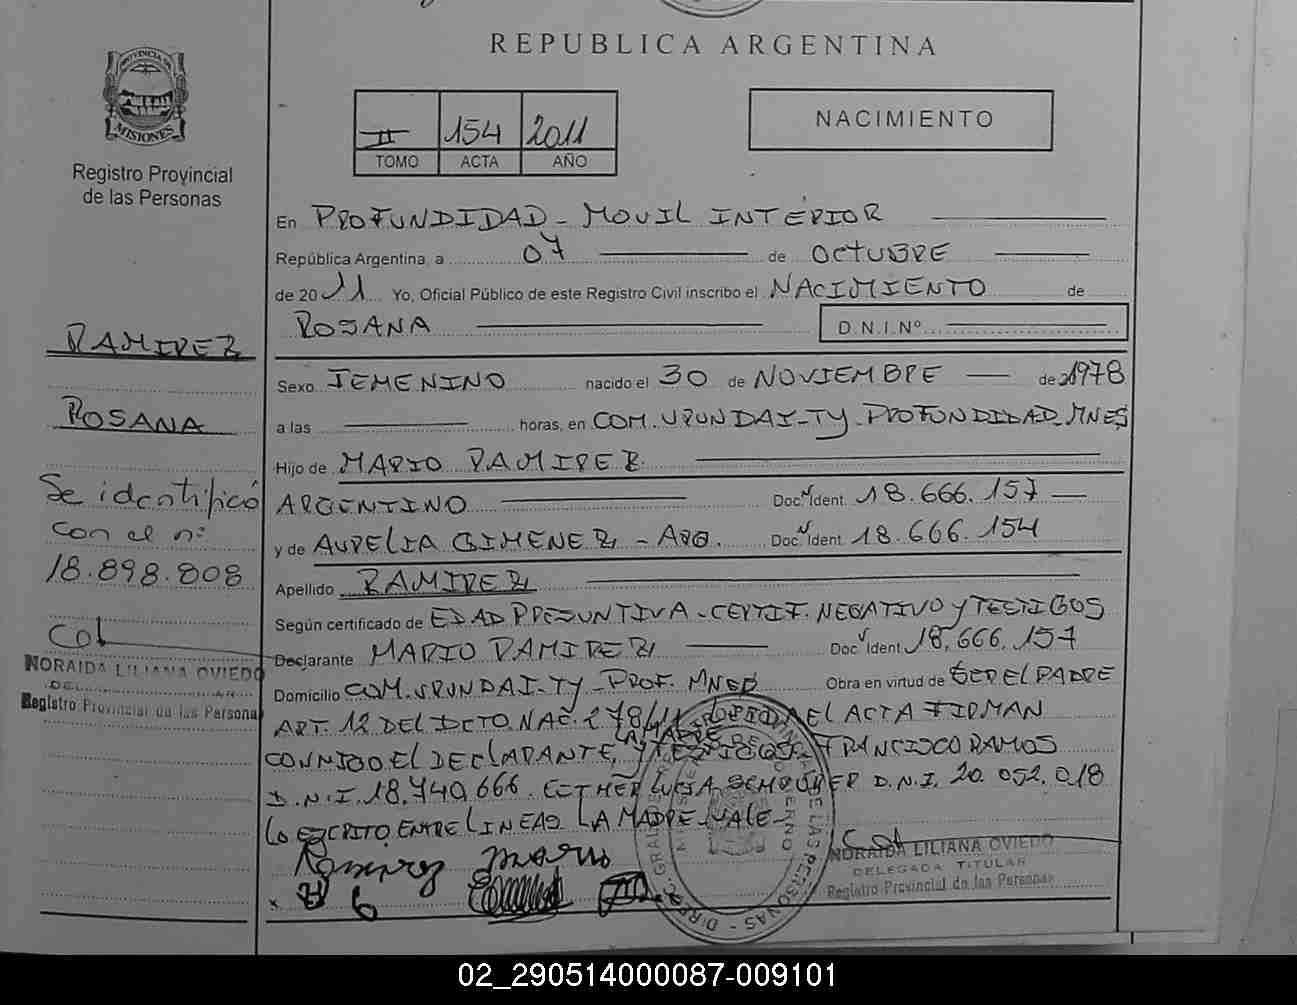 REPUBLICA ARGENTINA
PROVINCIA DE
MISIONES
Registro Provincial
de las Personas
II 154 2011
TOMO ACTA AÑO
NACIMIENTO
En PROFUNDIDAD - MOVIL INTERIOR
República Argentina, a 07 de OCTUBRE
de 2011 Yo, Oficial Público de este Registro Civil inscribo el NACIMIENTO de
ROSANA D.N.I. Nº
RAMIREZ
ROSANA
Se identificó
con el nº
18.898.808
NORAIDA LILIANA OVIEDO
Registro Provincial de las Personas
Sexo FEMENINO nacido el 30 de NOVIEMBRE de 1978
a las horas, en COM. URUNDAI - TY - PROFUNDIDAD - MNES
Hijo de MARIO RAMIREZ
ARGENTINO Doc. Ident. 18.666.157
y de AURELIA GIMENEZ - ARG. Doc. Ident. 18.666.154
Apellido RAMIREZ
Según certificado de EDAD PRESUNTIVA - CERTIF. NEGATIVO Y TESTIGOS
Declarante MARIO RAMIREZ Doc. Ident. 18.666.157
Domicilio COM. URUNDAI - TY - PROF. MNES Obra en virtud de SER EL PADRE
ART. 12 DEL DCTO. NAC. 278/11 EL ACTA FIRMAN
LA MADRE
CONMIGO EL DECLARANTE, Y TESTIGOS FRANCISCO RAMOS
D.N.I. 18.440.666. ESTHER LUISA D.N.I. 20.052.018
Lo ESCRITO ENTRE LINEAS LA MADRE - VALE -
Ramirez Mario
NORAIDA LILIANA OVIEDO
DELEGADA TITULAR
Registro Provincial de las Personas
02_290514000087-009101